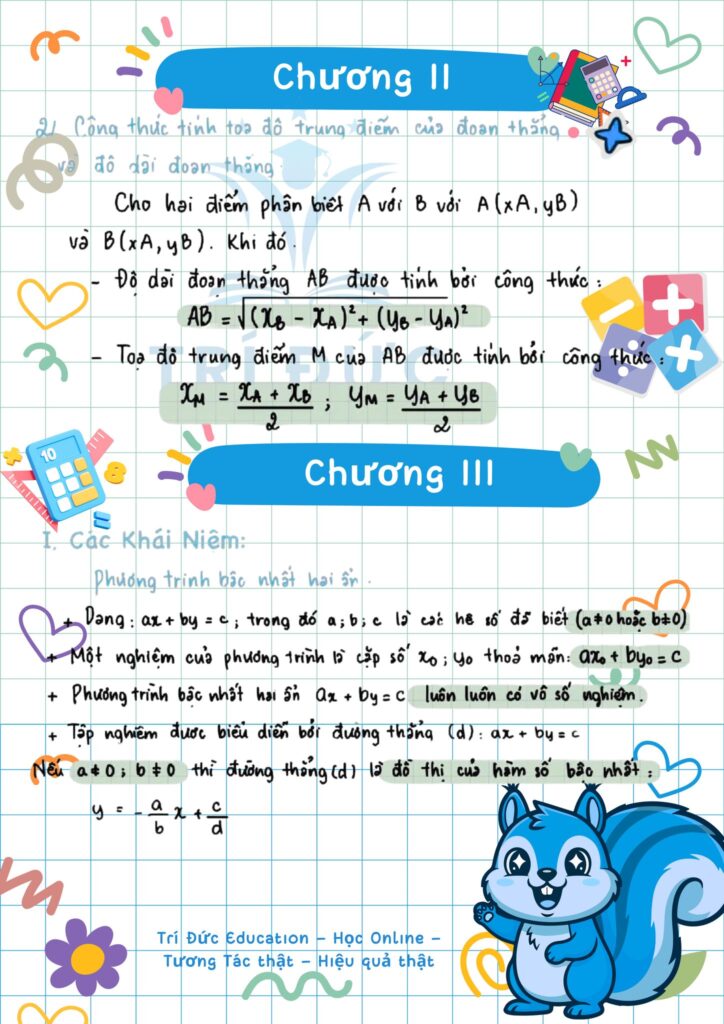 Chương II
2/ Công thức tính toạ độ trung điểm của đoạn thẳng
và độ dài đoạn thẳng.
Cho hai điểm phân biệt A với B với A(xA, yB)
và B(xA, yB). Khi đó.
- Độ dài đoạn thẳng AB được tính bởi công thức:
AB = √(x_B - x_A)² + (y_B - y_A)²
TRÍ ĐỨC
- Toạ độ trung điểm M của AB được tính bởi công thức:
x_M = (x_A + x_B)/2 ; y_M = (y_A + y_B)/2
10
8
Chương III
I. Các Khái Niệm:
Phương trình bậc nhất hai ẩn.
+ Dạng: ax + by = c; trong đó a; b; c là các hệ số đã biết (a ≠ 0 hoặc b ≠ 0)
+ Một nghiệm của phương trình là cặp số x₀; y₀ thoả mãn: ax₀ + by₀ = c
+ Phương trình bậc nhất hai ẩn ax + by = c luôn luôn có vô số nghiệm.
+ Tập nghiệm được biểu diễn bởi đường thẳng (d): ax + by = c
Nếu a ≠ 0; b ≠ 0 thì đường thẳng (d) là đồ thị của hàm số bậc nhất:
y = -a/b x + c/d
Trí Đức Education – Học Online –
Tương Tác thật – Hiệu quả thật